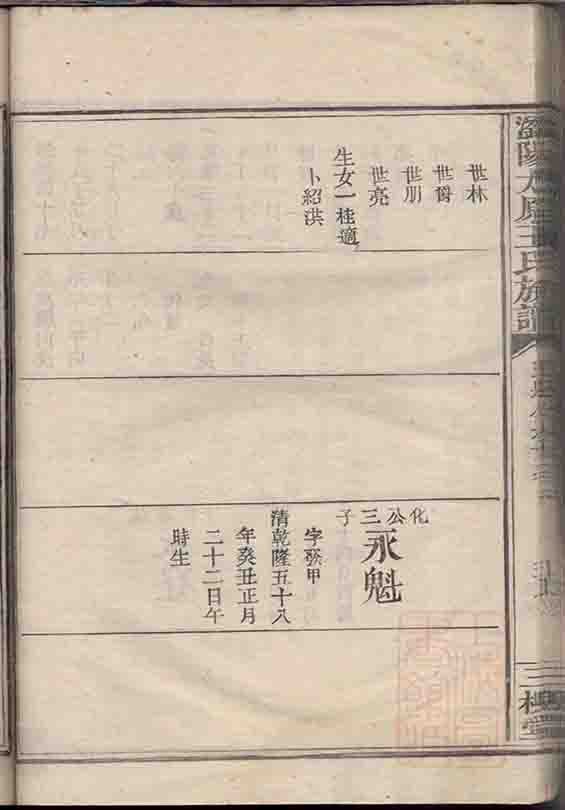 世林
世爵
世朋
世亮
生女一桂適
卜紹洪
化公三子
永魁
字癸甲
清乾隆五十八
年癸丑正月
二十二日午
時生
太原王氏族譜
三槐堂